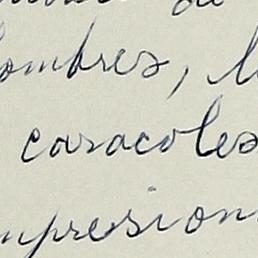 de
ombres, l
caracoles
mpresion